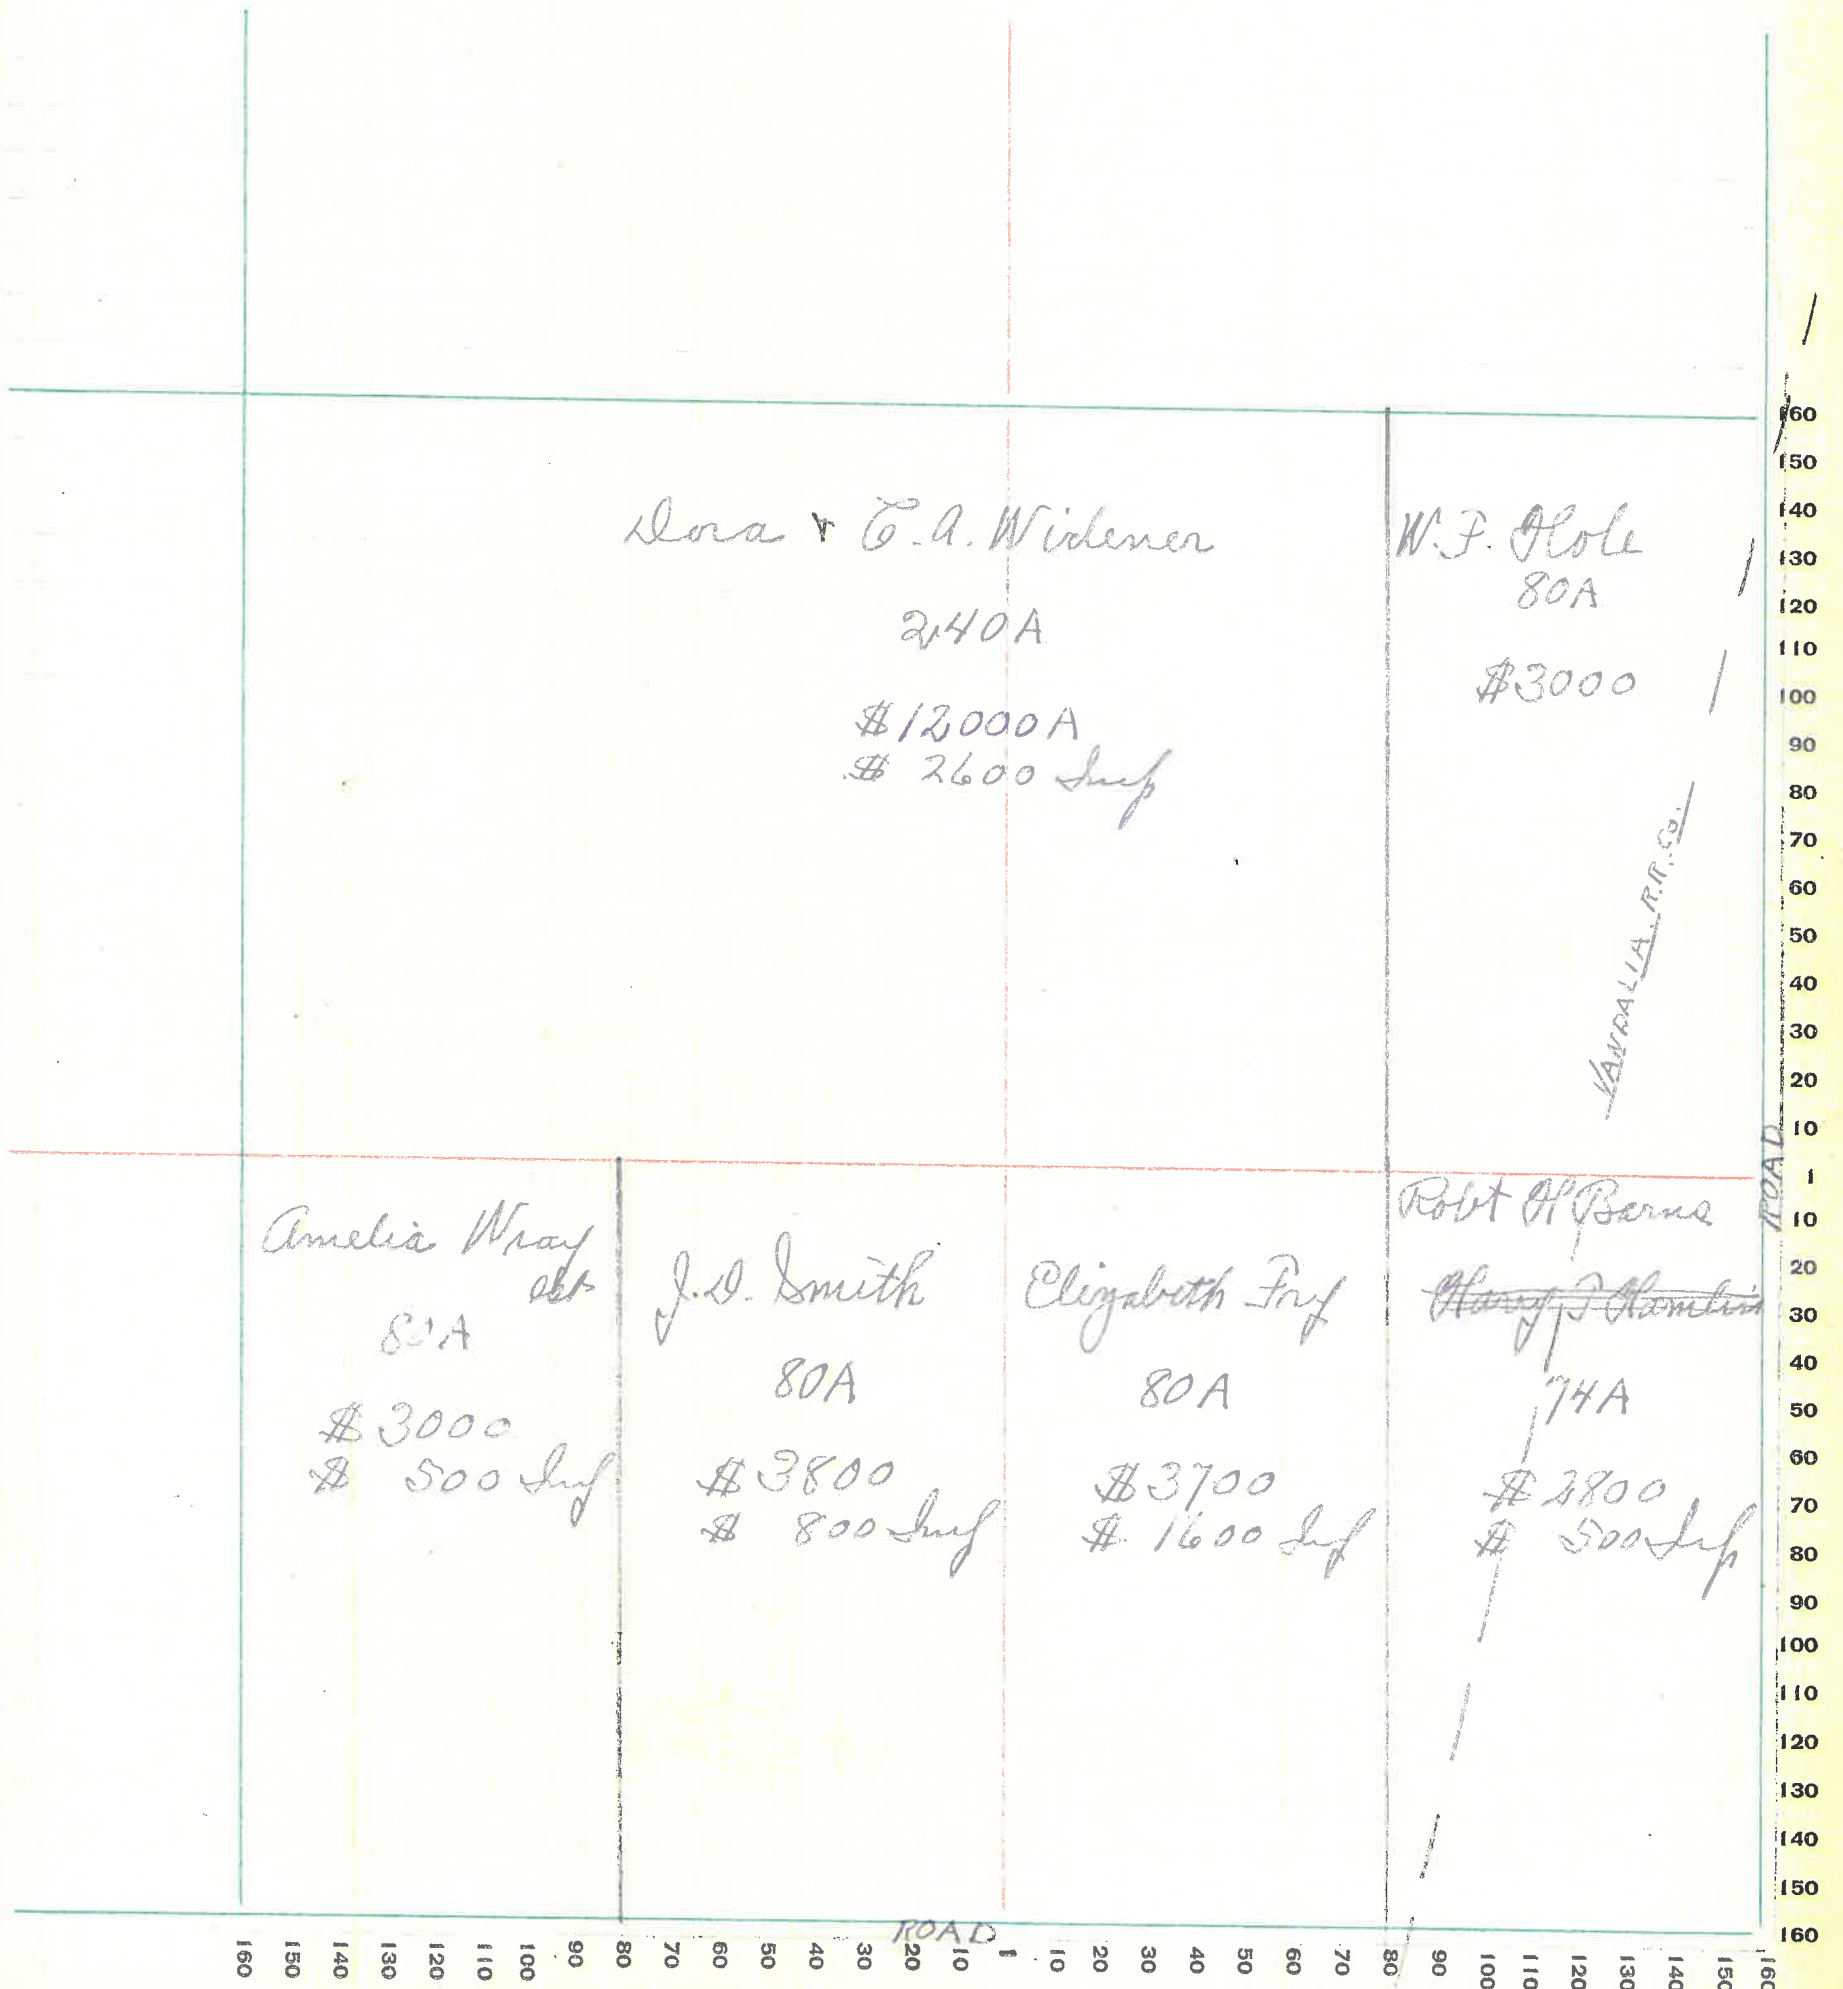 Dora & C. A. Widener
240 A
$12000 A
$ 2600 Imp
W. F. Hole
80A
$3000
VANDALIA. R.R. CO.
ROAD
Amelia Wray
est
80A
$ 3000
$ 500 Imp
J. D. Smith
80A
$ 3800
$ 800 Imp
Elizabeth Fry
80A
$3700
$ 1600 Imp
Robt H Barns
Harry T Hamlin
74A
$ 2800
$ 500 Imp
ROAD
160
150
140
130
120
110
100
90
80
70
60
50
40
30
20
10
1
10
20
30
40
50
60
70
80
90
100
110
120
130
140
150
160
160 150 140 130 120 110 100 90 80 70 60 50 40 30 20 10 1 10 20 30 40 50 60 70 80 90 100 110 120 130 140 150 160